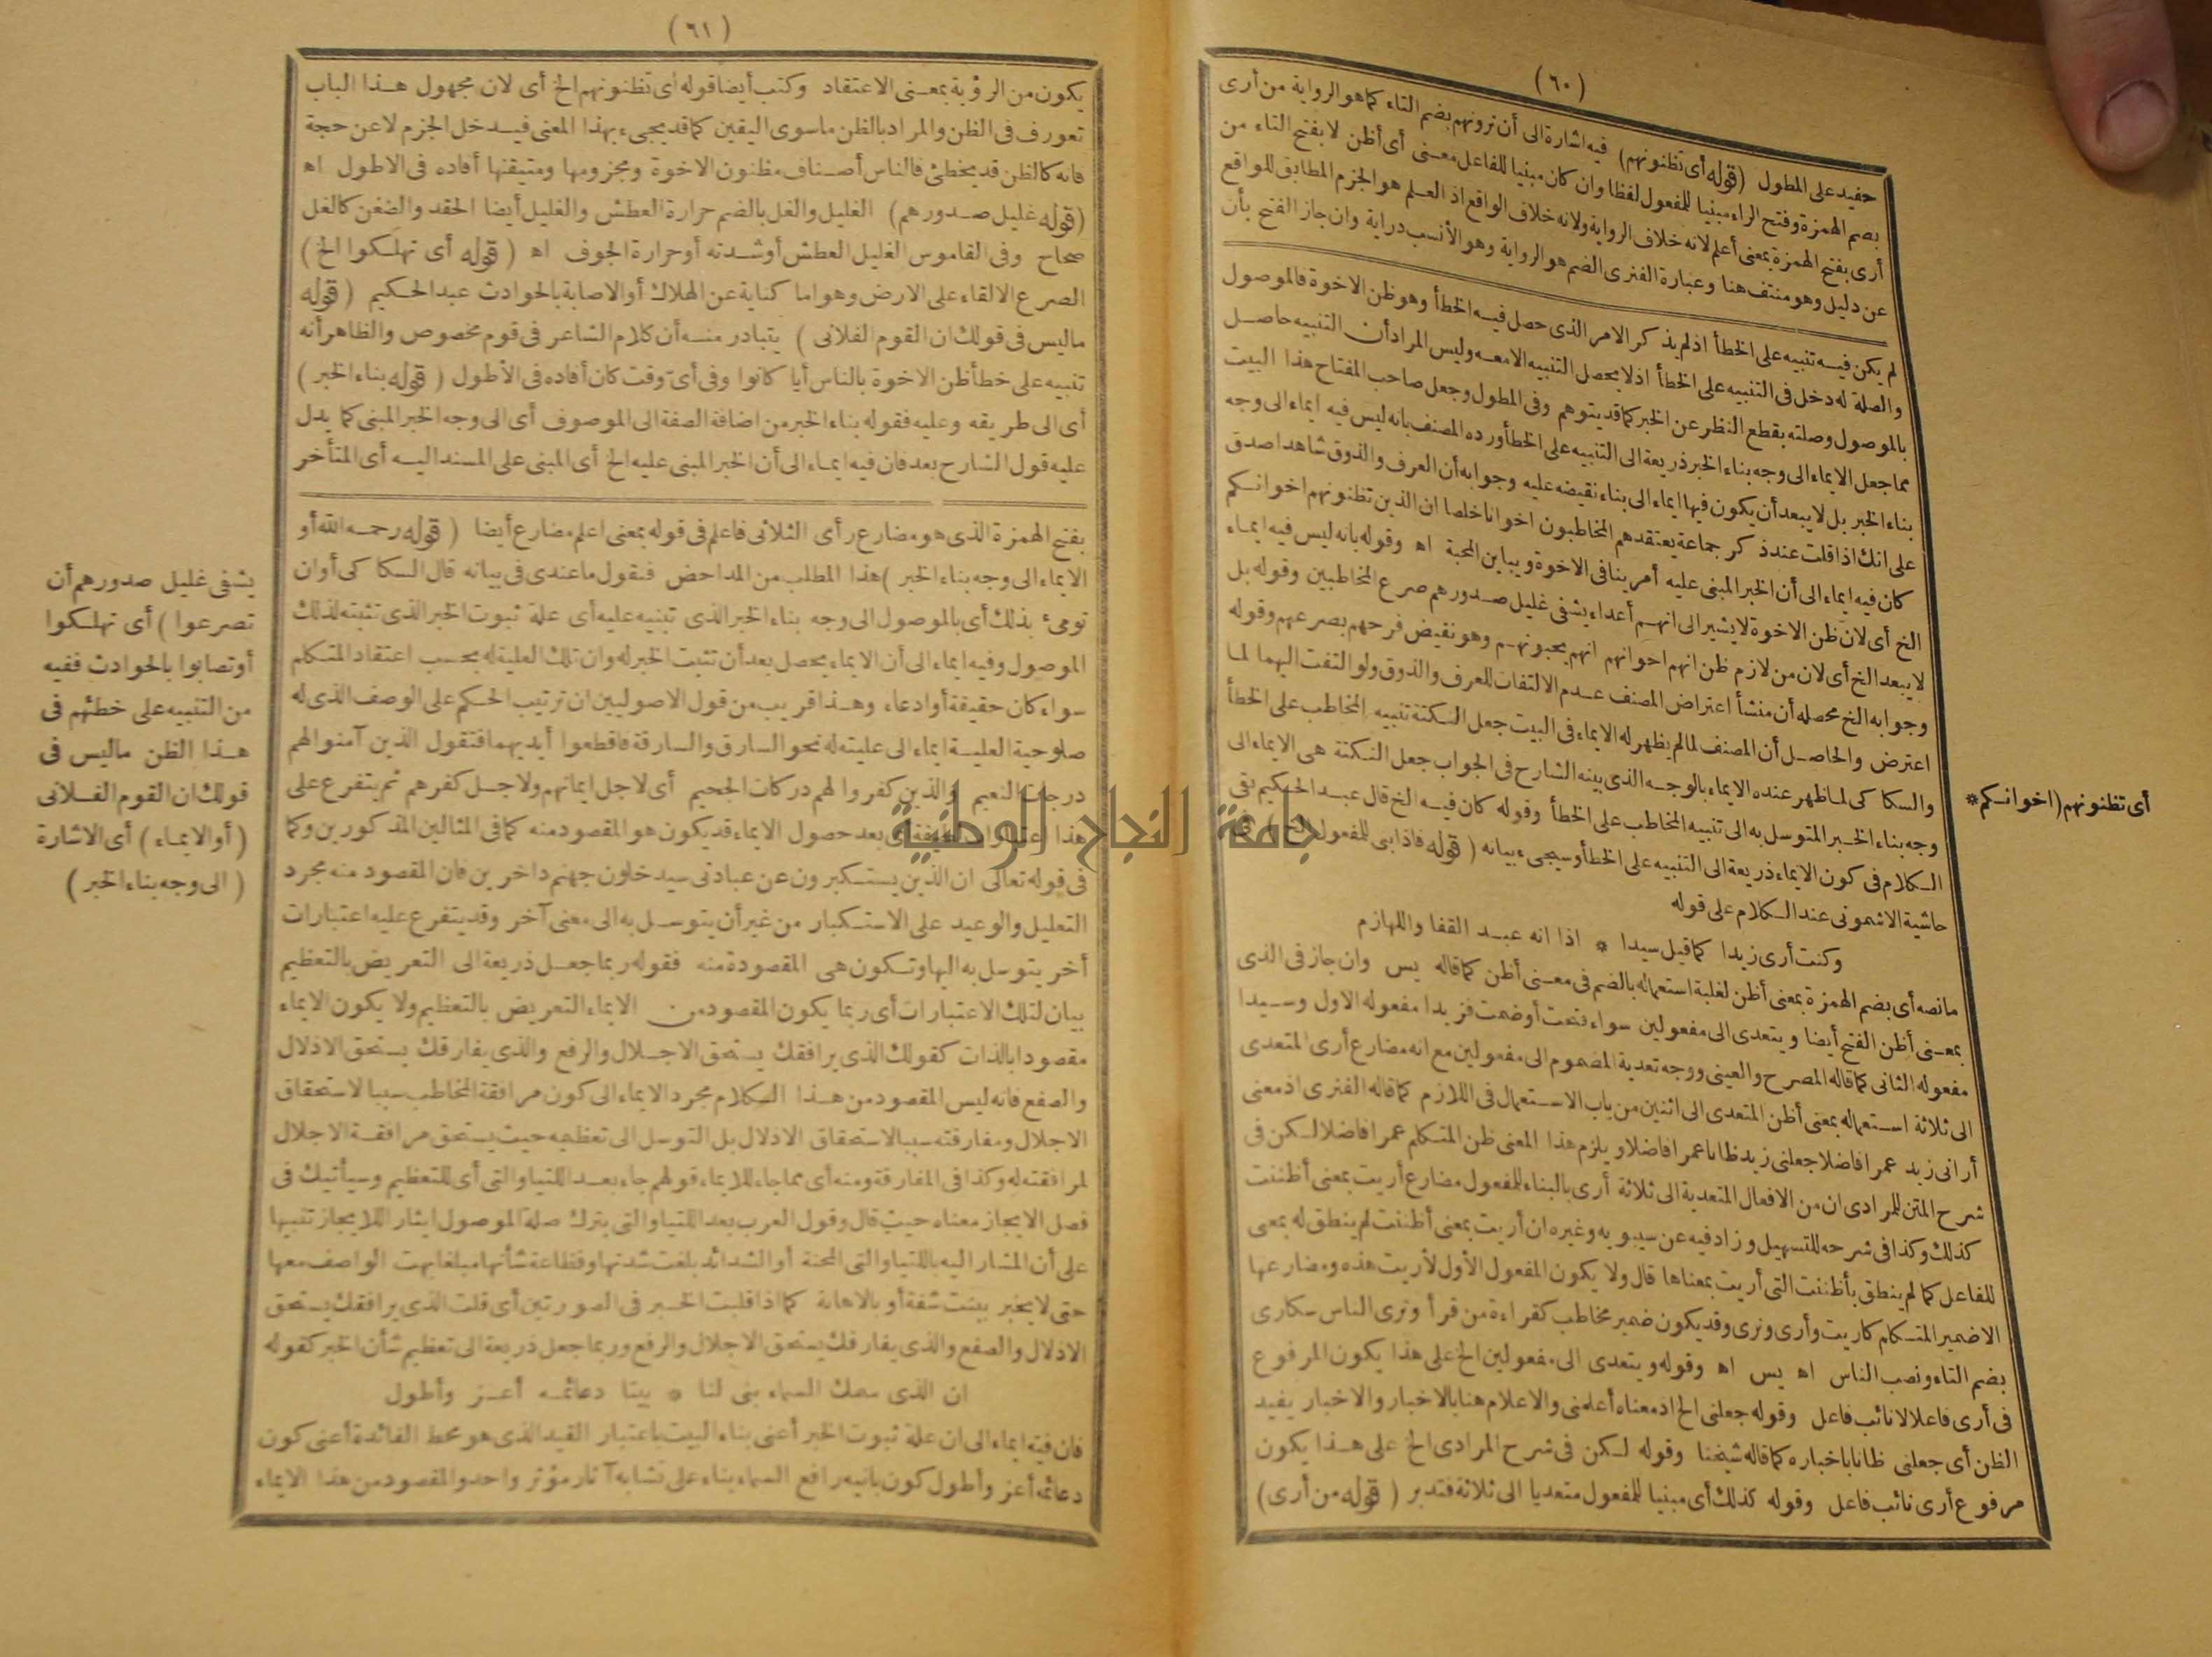 (٦٠)
حفيد على المطول (قوله أى تظنونهم) فيه اشارة الى أن ترونهم بضم التاء كما هو الرواية من أرى
بضم الهمزة وفتح الراء مبنيا للمفعول لفظا وان كان مبنيا للفاعل معنى أى أظن لا بفتح التاء من
أرى بفتح الهمزة بمعنى أعلم لانه خلاف الرواية ولانه خلاف الواقع اذ العلم هو الجزم المطابق للواقع
عن دليل وهو منتف هنا وعبارة الفنرى الضم هو الرواية وهو الأنسب دراية وان جاز الفتح بأن
لم يكن فيه تنبيه على الخطأ اذ لم يذكر الامر الذى حصل فيه الخطأ وهو ظن الاخوة فالموصول
والصلة له دخل فى التنبيه على الخطأ اذ لا يحصل التنبيه الا معه وليس المراد أن التنبيه حاصل
بالموصول وصلته بقطع النظر عن الخبر كما قد يتوهم وفى المطول وجعل صاحب المفتاح هذا البيت
مما جعل الايماء الى وجه بناء الخبر ذريعة الى التنبيه على الخطأ ورده المصنف بانه ليس فيه ايماء الى وجه
بناء الخبر بل لا يبعد أن يكون فيها ايماء الى بناء نقيضه عليه وجوابه أن العرف والذوق شاهدا صدق
على انك اذا قلت عند ذكر جماعة يعتقدهم المخاطبون اخوانا خلصا ان الذين تظنونهم اخوانكم
كان فيه ايماء الى أن الخبر المبنى عليه أمر ينافى الاخوة ويباين المحبة اه وقوله بانه ليس فيه ايماء
الخ أى لان ظن الاخوة لا يشير الى انهم أعداء يشفى غليل صدورهم صرع المخاطبين وقوله بل
لا يبعد الخ أى لان من لازم ظن انهم اخوانهم انهم يحبونهم وهو نقيض فرحهم بصرعهم وقوله
وجوابه الخ محصله أن منشأ اعتراض المصنف عدم الالتفات للعرف والذوق ولو التفت اليهما لما
اعترض والحاصل أن المصنف لما لم يظهر له الايماء فى البيت جعل النكتة تنبيه المخاطب على الخطأ
والسكاكى لما ظهر عنده الايماء بالوجه الذى بينه الشارح فى الجواب جعل النكتة هى الايماء الى
وجه بناء الخبر المتوسل به الى تنبيه المخاطب على الخطأ وقوله كان فيه الخ قال عبد الحكيم بقى
الكلام فى كون الايماء ذريعة الى التنبيه على الخطأ وسيجىء بيانه (قوله فاذا بنى للمفعول الخ) فى
حاشية الاشمونى عند الكلام على قوله
وكنت أرى زيدا كما قيل سيدا * اذا انه عبد القفا واللهازم
ما نصه أى بضم الهمزة بمعنى أظن لغلبة استعماله بالضم فى معنى أظن كما قاله يس وان جاز فى الذى
بمعنى أظن الفتح أيضا ويتعدى الى مفعولين سواء فتحت أو ضمت فزيدا مفعوله الاول وسيدا
مفعوله الثانى كما قاله المصرح والعينى ووجه تعدية المضموم الى مفعولين مع انه مضارع أرى المتعدى
الى ثلاثة استعماله بمعنى أظن المتعدى الى اثنين من باب الاستعمال فى اللازم كما قاله الفنرى اذ معنى
أرانى زيد عمرا فاضلا جعلنى زيد ظانا عمرا فاضلا ويلزم هذا المعنى ظن المتكلم عمرا فاضلا لكن فى
شرح المتن للمرادى ان من الافعال المتعدية الى ثلاثة أرى بالبناء للمفعول مضارع أريت بمعنى أظننت
كذلك وكذا فى شرحه للتسهيل وزاد فيه عن سيبويه وغيره ان أريت بمعنى أظننت لم ينطق له بمبنى
للفاعل كما لم ينطق بأظننت التى أريت بمعناها قال ولا يكون المفعول الأول لأريت هذه ومضارعها
الا ضمير المتكلم كاريت وأرى ونرى وقد يكون ضمير مخاطب كقراءة من قرأ وترى الناس سكارى
بضم التاء ونصب الناس اه يس اه وقوله ويتعدى الى مفعولين الخ على هذا يكون المرفوع
فى أرى فاعلا لا نائب فاعل وقوله جعلنى الخ اذ معناه أعلمنى والاعلام هنا بالاخبار والاخبار يفيد
الظن أى جعلنى ظانا باخباره كما قاله شيخنا وقوله لكن فى شرح المرادى الخ على هذا يكون
مرفوع أرى نائب فاعل وقوله كذلك أى مبنيا للمفعول متعديا الى ثلاثة فتدبر (قوله من أرى)
أى تظنونهم (اخوانكم *
(٦١)
يكون من الرؤية بمعنى الاعتقاد وكتب أيضا قوله أى تظنونهم الخ أى لان مجهول هذا الباب
تعورف فى الظن والمراد بالظن ما سوى اليقين كما قد يجىء بهذا المعنى فيدخل الجزم لا عن حجة
فانه كالظن قد يخطئ فالناس أصناف مظنون الاخوة ومجزومها ومتيقنها أفاده فى الاطول اه
(قوله غليل صدورهم) الغليل والغل بالضم حرارة العطش والغليل أيضا الحقد والضغن كالغل
صحاح وفى القاموس الغليل العطش أو شدته أو حرارة الجوف اه (قوله أى تهلكوا الخ)
الصرع الالقاء على الارض وهو اما كناية عن الهلاك أو الاصابة بالحوادث عبد الحكيم (قوله
ما ليس فى قولك ان القوم الفلانى) يتبادر منه أن كلام الشاعر فى قوم مخصوص والظاهر أنه
تنبيه على خطأ ظن الاخوة بالناس أيا كانوا وفى أى وقت كان أفاده فى الأطول (قوله بناء الخبر)
أى الى طريقه وعليه فقوله بناء الخبر من اضافة الصفة الى الموصوف أى الى وجه الخبر المبنى كما يدل
عليه قول الشارح بعد فان فيه ايماء الى أن الخبر المبنى عليه الخ أى المبنى على المسند اليه أى المتأخر
بفتح الهمزة الذى هو مضارع رأى الثلاثى فاعلم فى قوله بمعنى اعلم مضارع أيضا (قوله رحمه الله أو
الايماء الى وجه بناء الخبر) هذا المطلب من المداحض فنقول ما عندى فى بيانه قال السكاكى أو ان
تومئ بذلك أى بالموصول الى وجه بناء الخبر الذى تبنيه عليه أى علة ثبوت الخبر الذى تثبته لذلك
الموصول وفيه ايماء الى أن الايماء يحصل بعد أن تثبت الخبر له وان تلك العلية له بحسب اعتقاد المتكلم
سواء كان حقيقة أو ادعاء وهذا قريب من قول الاصوليين ان ترتيب الحكم على الوصف الذى له
صلوحية العلية ايماء الى عليته له نحو السارق والسارقة فاقطعوا أيديهما فتقول الذين آمنوا لهم
درجات النعيم والذين كفروا لهم دركات الجحيم أى لاجل ايمانهم ولاجل كفرهم ثم يتفرع على
هذا اعتبارات لطيفة أى بعد حصول الايماء قد يكون هو المقصود منه كما فى المثالين المذكورين وكما
فى قوله تعالى ان الذين يستكبرون عن عبادتى سيدخلون جهنم داخرين فان المقصود منه مجرد
التعليل والوعيد على الاستكبار من غير أن يتوسل به الى معنى آخر وقد يتفرع عليه اعتبارات
أخر يتوسل به اليها وتكون هى المقصودة منه فقوله ربما جعل ذريعة الى التعريض بالتعظيم
بيان لتلك الاعتبارات أى ربما يكون المقصود من الايماء التعريض بالتعظيم ولا يكون الايماء
مقصودا بالذات كقولك الذى يرافقك يستحق الاجلال والرفع والذى يفارقك يستحق الاذلال
والصفع فانه ليس المقصود من هذا الكلام مجرد الايماء الى كون مرافقة المخاطب سببا لاستحقاق
الاجلال ومفارقته سببا لاستحقاق الاذلال بل التوسل الى تعظيمه حيث يستحق مرافقه الاجلال
لمرافقته له وكذا فى المفارقة ومنه أى مما جاء للايماء قولهم جاء بعد اللتيا والتى أى للتعظيم وسيأتيك فى
فصل الايجاز معناه حيث قال وقول العرب بعد اللتيا والتى بترك صلة الموصول ايثار اللايجاز تنبيها
على أن المشار اليه باللتيا والتى المحنة أو الشدائد بلغت شدتها وفظاعة شأنها مبلغا يبهت الواصف معها
حتى لا يحير ببنت شفة أو بالاهانة كما اذا قلبت الخبر فى الصورتين أى قلت الذى يرافقك يستحق
الاذلال والصفع والذى يفارقك يستحق الاجلال والرفع وربما جعل ذريعة الى تعظيم شأن الخبر كقوله
ان الذى سمك السماء بنى لنا * بيتا دعائمه أعز وأطول
فان فيه ايماء الى ان علة ثبوت الخبر أعنى بناء البيت باعتبار القيد الذى هو محط الفائدة أعنى كون
دعائمه أعز وأطول كون بانيه رافع السماء بناء على تشابه آثار مؤثر واحد والمقصود من هذا الايماء
يشفى غليل صدورهم أن
تصرعوا) أى تهلكوا
أو تصابوا بالحوادث ففيه
من التنبيه على خطئهم فى
هذا الظن ما ليس فى
قولك ان القوم الفلانى
(أو الايماء) أى الاشارة
(الى وجه بناء الخبر)
جامعة النجاح الوطنية